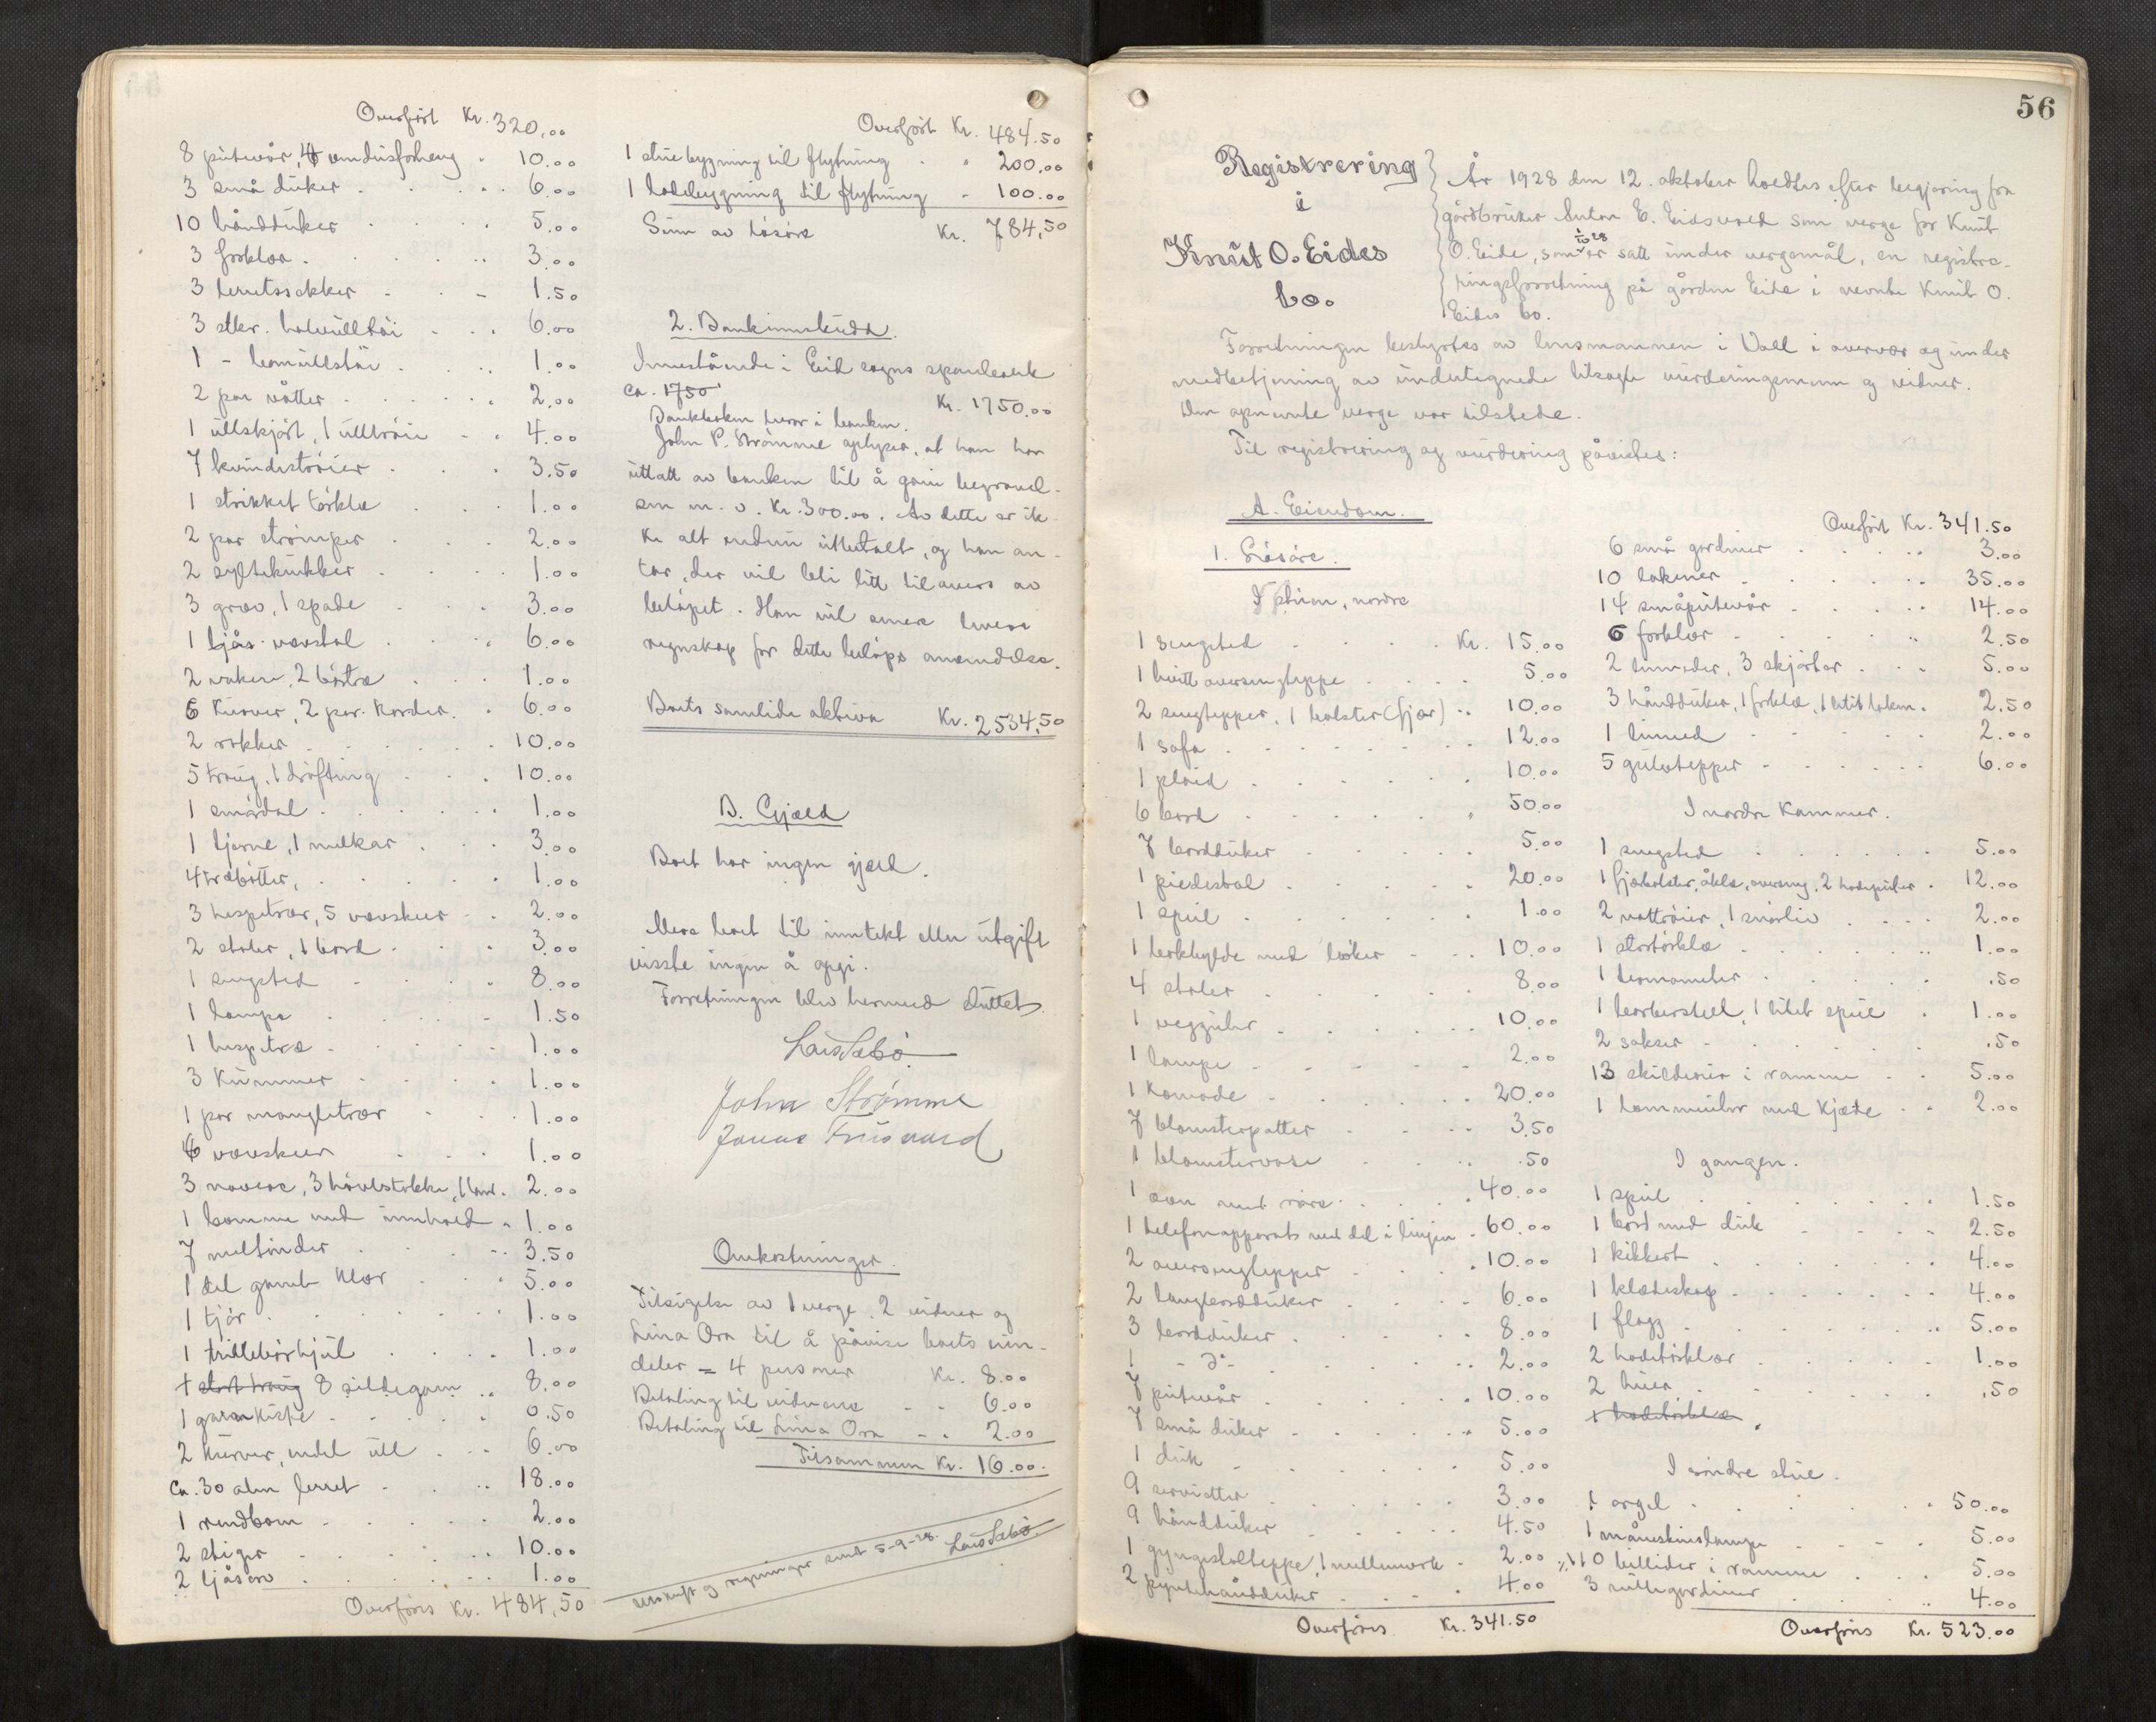 Overført Kr. 320.00
8 putevår, 4 vindusforheng . 10.00
3 små duker . . . . 6.00
10 håndduker . . . . 5.00
3 forklær . . . . 3.00
3 lerretssekker - . - 1.50
3 stkr. halvulltøi - . . 6.00
1 - bomullstøi . . . 1.00
2 par våtter . . . . 2.00
1 ullskjørt, 1 ulltrøie - . 4.00
7 kvindetrøier . . . 3.50
1 strikket tørklæ . . . 1.00
2 par strømper . . . 2.00
2 syltekrukker . . . 1.00
3 grev, 1 spade . . . 3.00
1 ljås. vevstol . . . 6.00
2 vakker, 2 børtre . . . 1.00
6 kurver, 2 par. karder. . 6.00
2 rokker . . . . 10.00
5 traug, 1 drøfting . . . 10.00
1 smørdal . . . . 1.00
1 kjerne, 1 melkar . . . 3.00
4 trebøtter, . . . . 1.00
3 hespetrær, 5 vevskeer - . 2.00
2 stoler, 1 bord - . . 3.00
1 sengsted . . . . 8.00
1 lampe . . . - 1.50
1 hespetre . . . . 1.00
3 krummer . . . . 1.00
1 par mangletrær . . . 1.00
6 vevskeer . . . 1.00
3 navere, 3 høvlstokke, 1 . 2.00
1 komme med innhold . 1.00
7 meltønder . . . . 3.50
1 del gamle klær . . . 5.00
1 tjør . . . . 1.00
1 trillebørhjul . . . . 1.00
1 stort traug 8 sildegarn . . 8.00
1 garnkiste . . . . 0.50
2 kurver, endel ull . . . 6.00
Ca. 30 alen lerret - . . . 18.00
1 rendbom . . . . 2.00
2 stiger . . . . 10.00
2 ljåsorv . . . . 1.00
Overføres Kr. 484.50
Overført Kr. 484.50
1 stuebygning til flytning . . 200.00
1 ladebygning til flytning - 100.00
Sum av løsøre Kr. 784.50
2. Bankinnskudd.
Innestående i Eid sogns sparebank
ca. 1750 Kr. 1750.00
Bankboken beror i banken.
John P. Strømme oplyser, at han har
uttatt av banken til å greie begravel-
sen m. v. Kr. 300.00. Av dette er ik-
ke alt endnu utbetalt, og han an-
tar, der vil bli litt tilovers av
beløpet. Han vil senere levere
regnskap for dette beløps anvendelse.
Boets samlede aktiva Kr. 2534.50
B. Gjæld
Boet har ingen gjæld.
Mere boet til inntekt eller utgift
visste ingen å opgi.
Forretningen blev hermed sluttet.
Lars Sæbø
John Strømme
Omkostninger.
Tilsigelse av 1 verge, 2 vidner og
Lina Ora til å påvise boets ein-
deler = 4 personer Kr. 8.00
Betaling til vidnene - - 6.00
Betaling til Lina Ora - . 2.00
Tilsammen Kr. 16.00.
Utskrift og regninger sendt 5-9-28. Lars Sæbø
56
Registrering
i
Knut O. Eides
bo.
År 1928 den 12. oktober holdtes efter begjæring fra
gårdbruker Anton E. Eidsvold som verge for Knut
O. Eide, som er satt under vergemål, en registre-
ringsforretning på gården Eide i nevnte Knut O.
Eides bo.
Forretningen bestyrtes av lensmannen i Voll i overvær og under
medbetjening av undertegnede tilsagte vurderingsmenn og vidner.
Den opnevnte verge var tilstede.
Til registrering og vurdering påvistes:
A. Eiendom.
1. Løsøre.
I stuen, nordre
1 sengsted . . . Kr. 15.00
1 hvitt oversengteppe . . . 5.00
2 sengtepper, 1 bolster (fjær) . . 10.00
1 sofa . . . . 12.00
1 pleid . . . . 10.00
6 bord . . . . 50.00
7 bordduker . . . . 5.00
1 piedestal . . . . 20.00
1 speil . . . . 1.00
1 bokhylde med bøker - . . 10.00
4 stoler . . . . 8.00
1 veggiuhr . . . . 10.00
1 lampe . . . . 2.00
1 komode . . . . 20.00
7 blomsterpotter . . . 3.50
1 blomstervase . . . .50
1 ovn med røre . . . 40.00
1 telefonapparat med del i linjen . 60.00
2 oversengtepper . . . 10.00
2 langbordduker . . . 6.00
3 bordduker . . . . 8.00
1 - do - . . . 2.00
7 putevår . . . . 10.00
7 små duker . . . . 5.00
1 duk . . . . 5.00
9 servietter . . . . 3.00
9 håndduker . . . . 4.50
1 gyngestolteppe, 1 mellemverk - 2.00
2 pyntehåndduker . . . 4.00
Overføres Kr. 341.50
Overført Kr. 341.50
6 små gardiner . . . . 3.00
10 lakener . . . . 35.00
14 småputevår . . . . 14.00
6 forklær . . . . 2.50
2 linneder, 3 skjorter . . . 5.00
3 håndduker, 1 forklæ, 1 litet laken . 2.50
1 linned . . . . 2.00
5 gulvtepper . . . . 6.00
I nordre kammer.
1 sengsted . . . . 5.00
1 fjærbolster, åklæ, overseng, 2 hodeputer . 12.00
2 nattrøier, 1 snørliv . . . 2.00
1 stortørklæ . . . . 1.00
1 termometer . . . . .50
1 barberstell, 1 litet speil . 1.00
2 sakser . . . . .50
13 skilderier i ramme . . 5.00
1 lommeuhr med kjede . . 2.00
I gangen.
1 speil . . . . 1.50
1 bord med duk . . . 2.50
1 kikkert . . . . 4.00
1 klædeskap . . . . 4.00
1 flagg . . . . 5.00
2 hodetørklær . . . . 1.00
2 huer . . . . .50
1 hodetørklæ .
I søndre stue.
1 orgel . . . . 50.00
1 måneskinslampe . . . 5.00
10 billeder i ramme . . . 5.00
3 rullegardiner . . . 4.00
Overføres Kr. 523.00